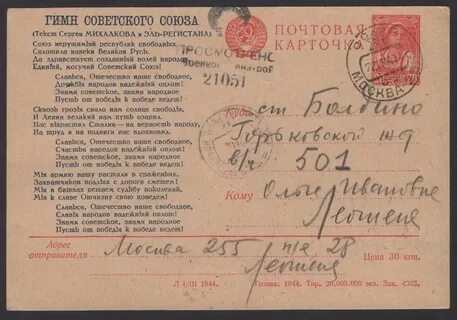 ГИМН СОВЕТСКОГО СОЮЗА
(Текст Сергея МИХАЛКОВА и ЭЛЬ-РЕГИСТАНА)
Союз нерушимый республик свободных
Сплотила навеки Великая Русь.
Да здравствует созданный волей народов
Единый, могучий Советский Союз!
Славься, Отечество наше свободное,
Дружбы народов надежный оплот!
Знамя советское, знамя народное
Пусть от победы к победе ведет!
Сквозь грозы сияло нам солнце свободы,
И Ленин великий нам путь озарил.
Нас вырастил Сталин — на верность народу,
На труд и на подвиги нас вдохновил.
Славься, Отечество наше свободное,
Счастья народов надежный оплот!
Знамя советское, знамя народное
Пусть от победы к победе ведет!
Мы армию нашу растили в сраженьях,
Захватчиков подлых с дороги сметем!
Мы в битвах решаем судьбу поколений,
Мы к славе Отчизну свою поведем!
Славься, Отечество наше свободное,
Славы народов надежный оплот!
Знамя советское, знамя народное
Пусть от победы к победе ведет!
ПОЧТОВАЯ
КАРТОЧКА
ПРОСМОТРЕНО
Военной
21051
МОСКВА
20
Куда
ст Болдино
Горьковской жд
в/ч 501
Кому
Ольге Ивановне
Адрес
отправителя
Москва 255 п/я 28
Цена 30 коп.
1944.
Гознак. 1944. Тир. 20.000.000 экз. Зак. 4305.